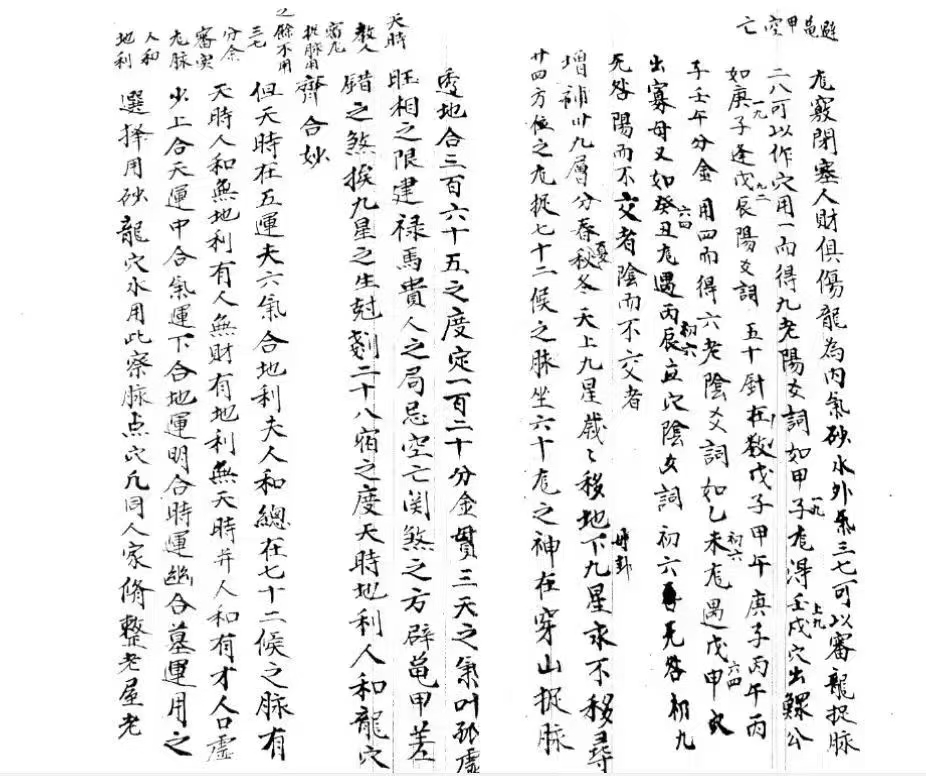 避龜甲空亡
尨竅閉塞人財俱傷龍為內氣砂水外氣三七可以審龍捉脉
二八可以作穴用一而得九老陽爻詞如甲子尨得壬戌穴出鰥公
一九
上九
如庚子逢戊辰陽爻詞五十針在教戊子甲午庚子丙午丙
一九
九二
子壬午分金用四而得六老陰爻詞如乙未尨遇戊申穴
六四
初六
六四
出寡母又如癸丑尨遇丙辰直穴陰爻詞初六無咎初九
初六
无咎陽而不交者陰而不交者
增補卅九層分春秋冬天上九星歲々移地下九星永不移尋
夏
廿四方位之尨捉七十二候之脉坐六十尨之神在穿山捉脉
透地合三百六十五之度定一百二十分金貫三天之氣叶孤虛
旺相之限建祿馬貴人之局忌空亡関煞之方辟龜甲差
錯之煞挨九星之生尅剗二十八宿之度天時地利人和龍穴
齊合妙
天時
教人
審尨
捉脉用
之餘不用
但天時在五運夫六氣合地利夫人和總在七十二候之脉有
天時人和無地利有人無財有地利無天時并人和有才人口虛
少上合天運中合氣運下合地運明合時運幽合墓運用之
選擇用砂龍穴水用此察脉点穴凡同人家脩整老屋老
三七
分金
審穴
尨脉
人和
地利